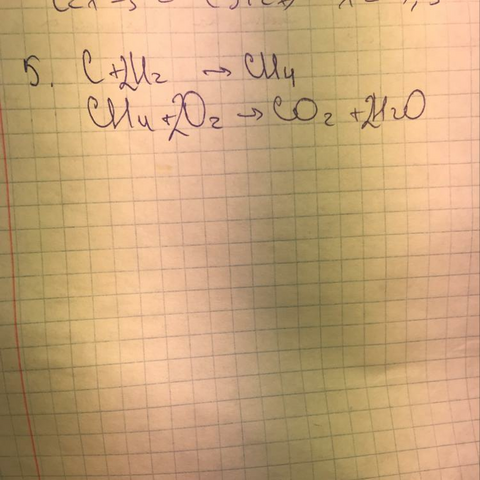 5. C + 2H₂ → CH₄
CH₄ + 2O₂ → CO₂ + 2H₂O